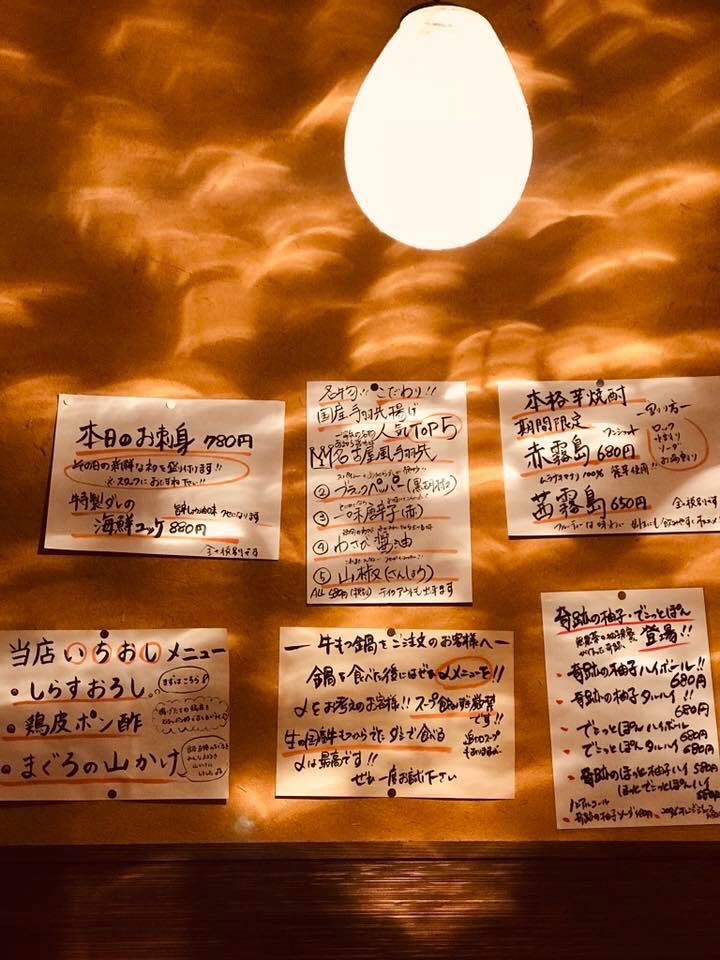 本日のお刺身 780円
その日の新鮮なネタを盛り付けます!!
※スタッフにおたずね下さい!!
特製ダレの
海鮮ユッケ 880円
全て税別です
名物!! こだわり!!
国産手羽先揚げ
人気TOP5
名古屋風手羽先
② ブラックペッパー(黒胡椒)
③ 一味唐辛子(赤)
④ わさび醤油
⑤ 山椒(さんしょう)
ALL 580円(税別) テイクアウトも出来ます
本格芋焼酎
期間限定
赤霧島 680円
茜霧島 650円
ロック
水わり
ソーダ
お湯わり
当店いちおしメニュー
まずはこちら
・しらすおろし
・鶏皮ポン酢
・まぐろの山かけ
― 牛もつ鍋をご注文のお客様へ ―
鍋を食べた後にはぜひ〆メニューを!!
〆をお考えのお客様!! スープ飲み干し厳禁
です!!
生の国産牛もつからでたダシで食べる
〆は最高です!!
ぜひ一度お試し下さい
奇跡の柚子・でこっとぽん
登場!!
・奇跡の柚子ハイボール!!
680円
・奇跡の柚子タルハイ!!
680円
・でこっとぽんハイボール
680円
・でこっとぽんタルハイ
680円
・奇跡のほっと柚子ハイ
ほっとでこっとぽんハイ
580円
ノンアルコール